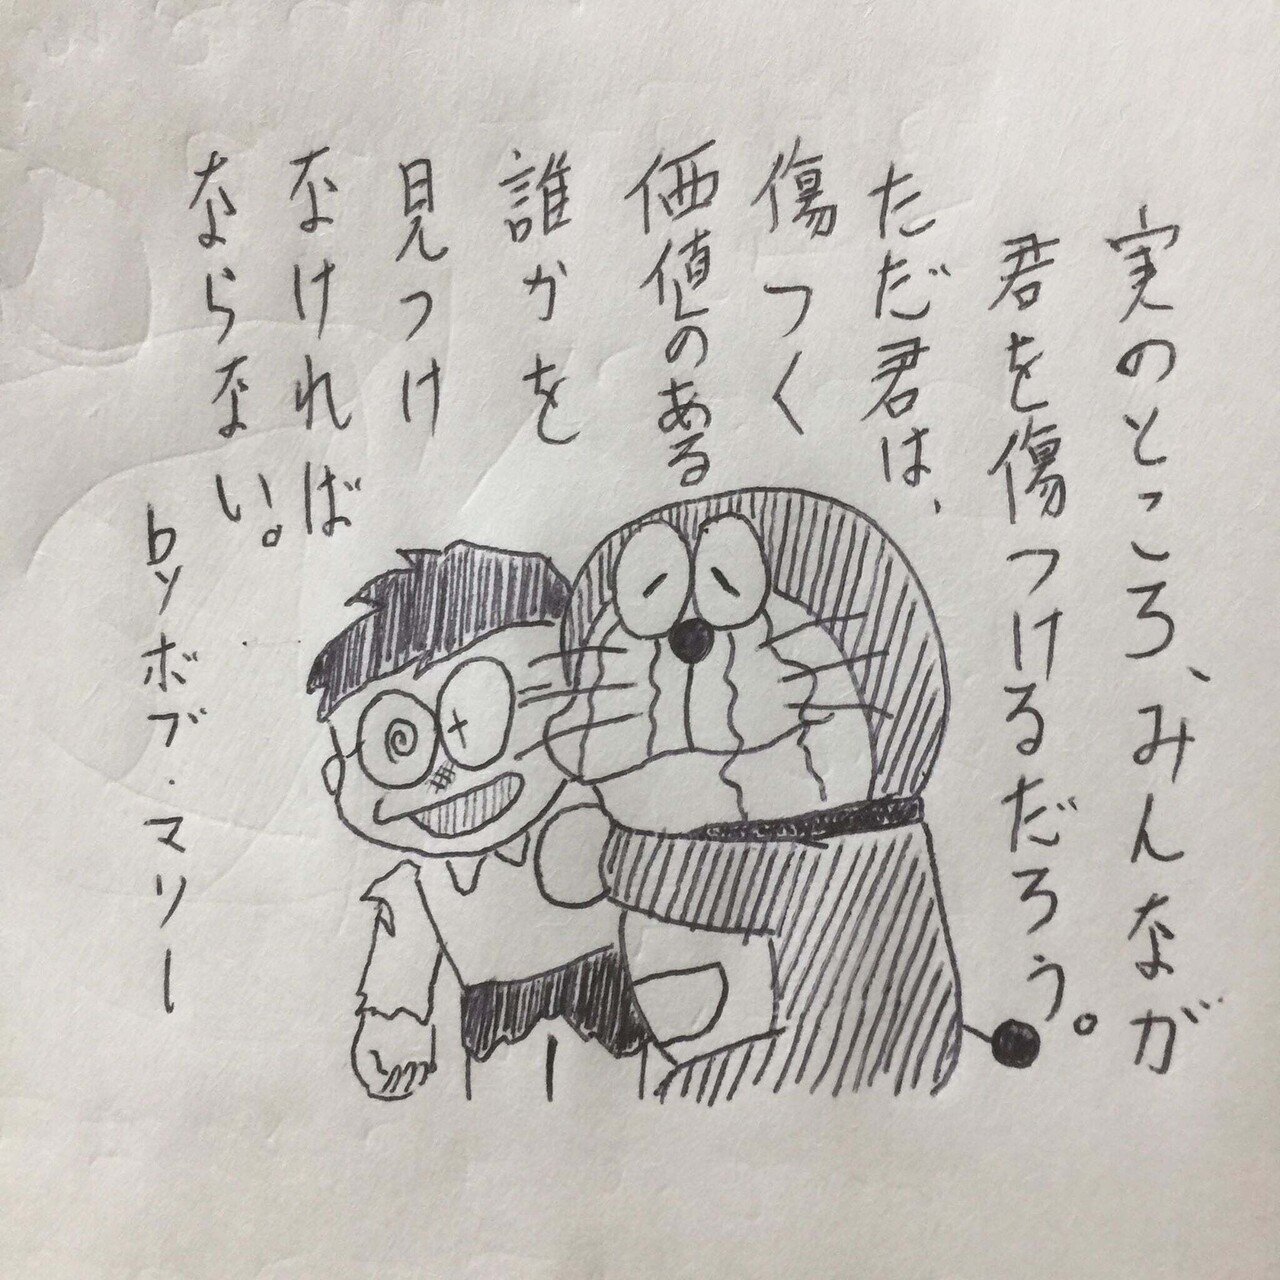 実のところ、みんなが
君を傷つけるだろう。
ただ君は、
傷つく
価値のある
誰かを
見つけ
なければ
ならない。
byボブ・マリー